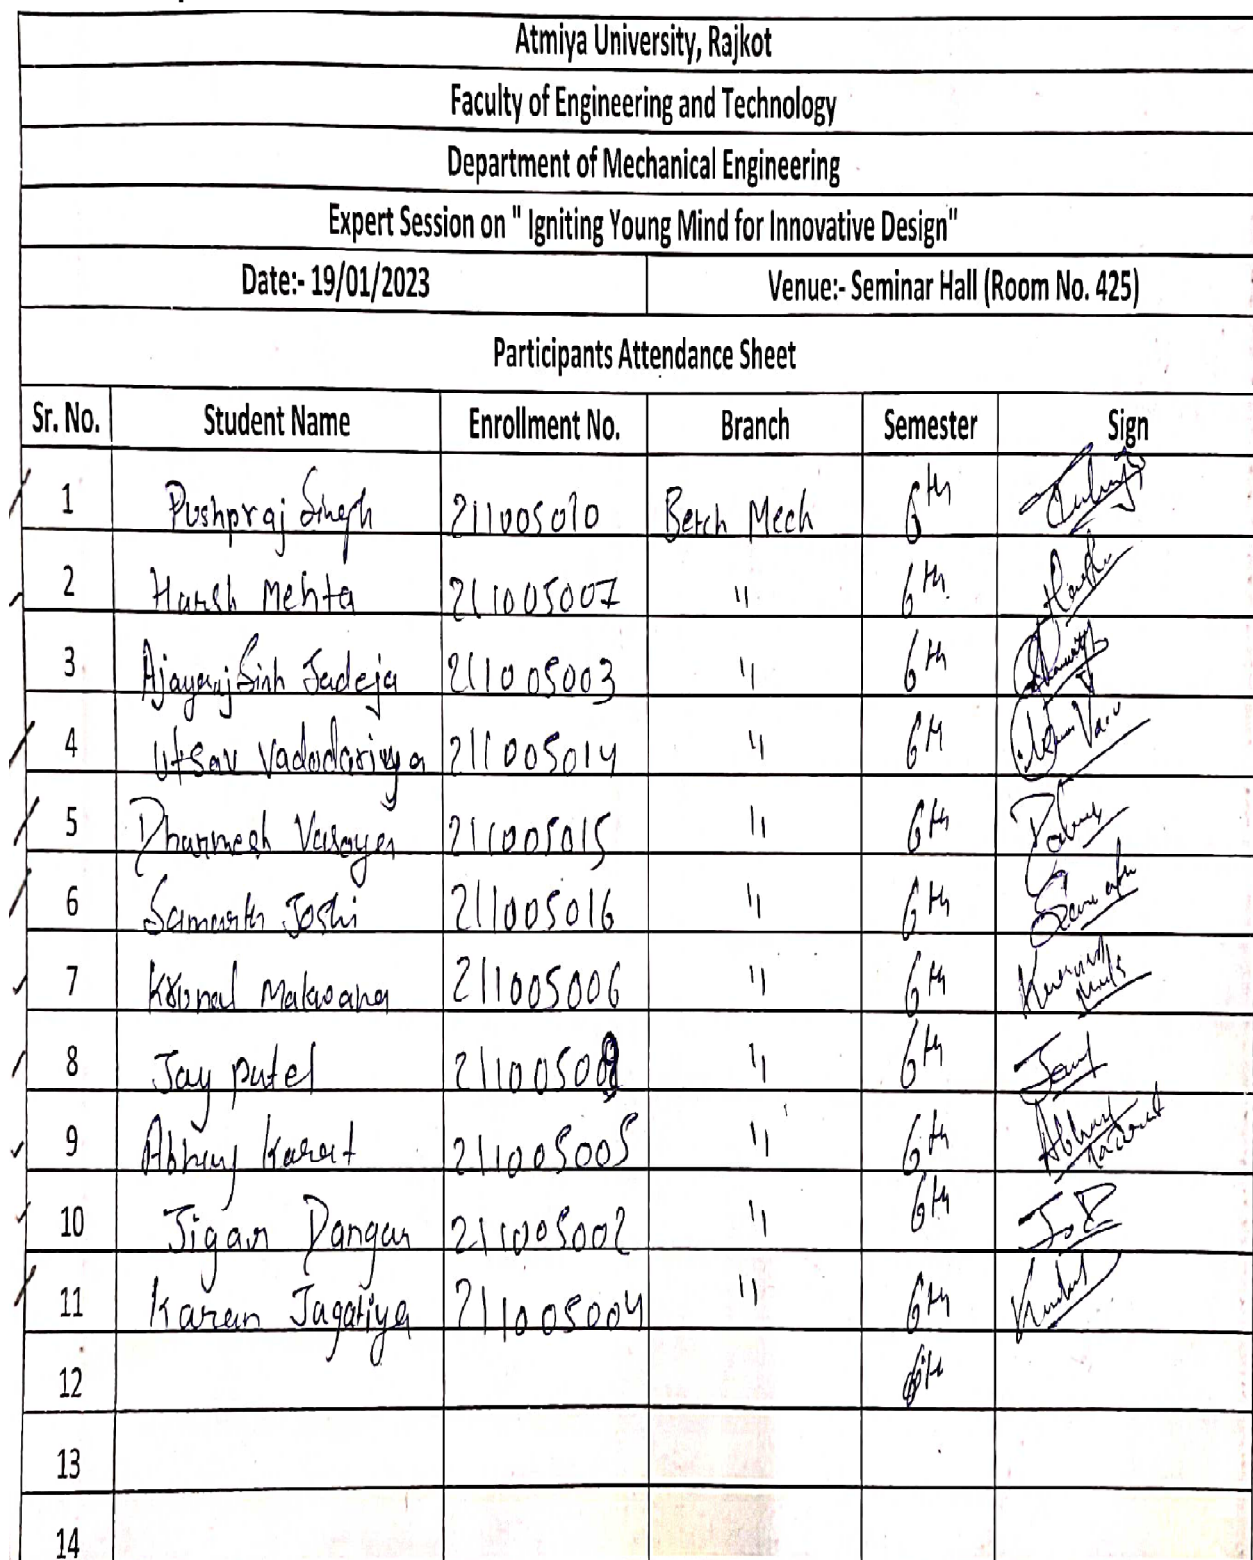 Atmiya University, Rajkot
Faculty of Engineering and Technology
Department of Mechanical Engineering
Expert Session on " Igniting Young Mind for Innovative Design"
Date:- 19/01/2023 Venue:- Seminar Hall (Room No. 425)
Participants Attendance Sheet
Sr. No. Student Name Enrollment No. Branch Semester Sign
1 Pushpraj Singh 211005010 Betch Mech 6th
2 Harsh Mehta 211005007 " 6th
3 Ajayraj Sinh Jadeja 211005003 " 6th
4 Utsav Vadodariya 211005014 " 6th
5 Dharmesh Vasoya 211005015 " 6th
6 Samarth Joshi 211005016 " 6th Samarth
7 Krunal Makwana 211005006 " 6th
8 Jay patel 21100500 " 6th Jay
9 Abhay Karat 211005005 " 6th Abhay
10 Jigar Dangar 211005002 " 6th
11 Karan Jagatiya 211005004 " 6th
12 6th
13
14